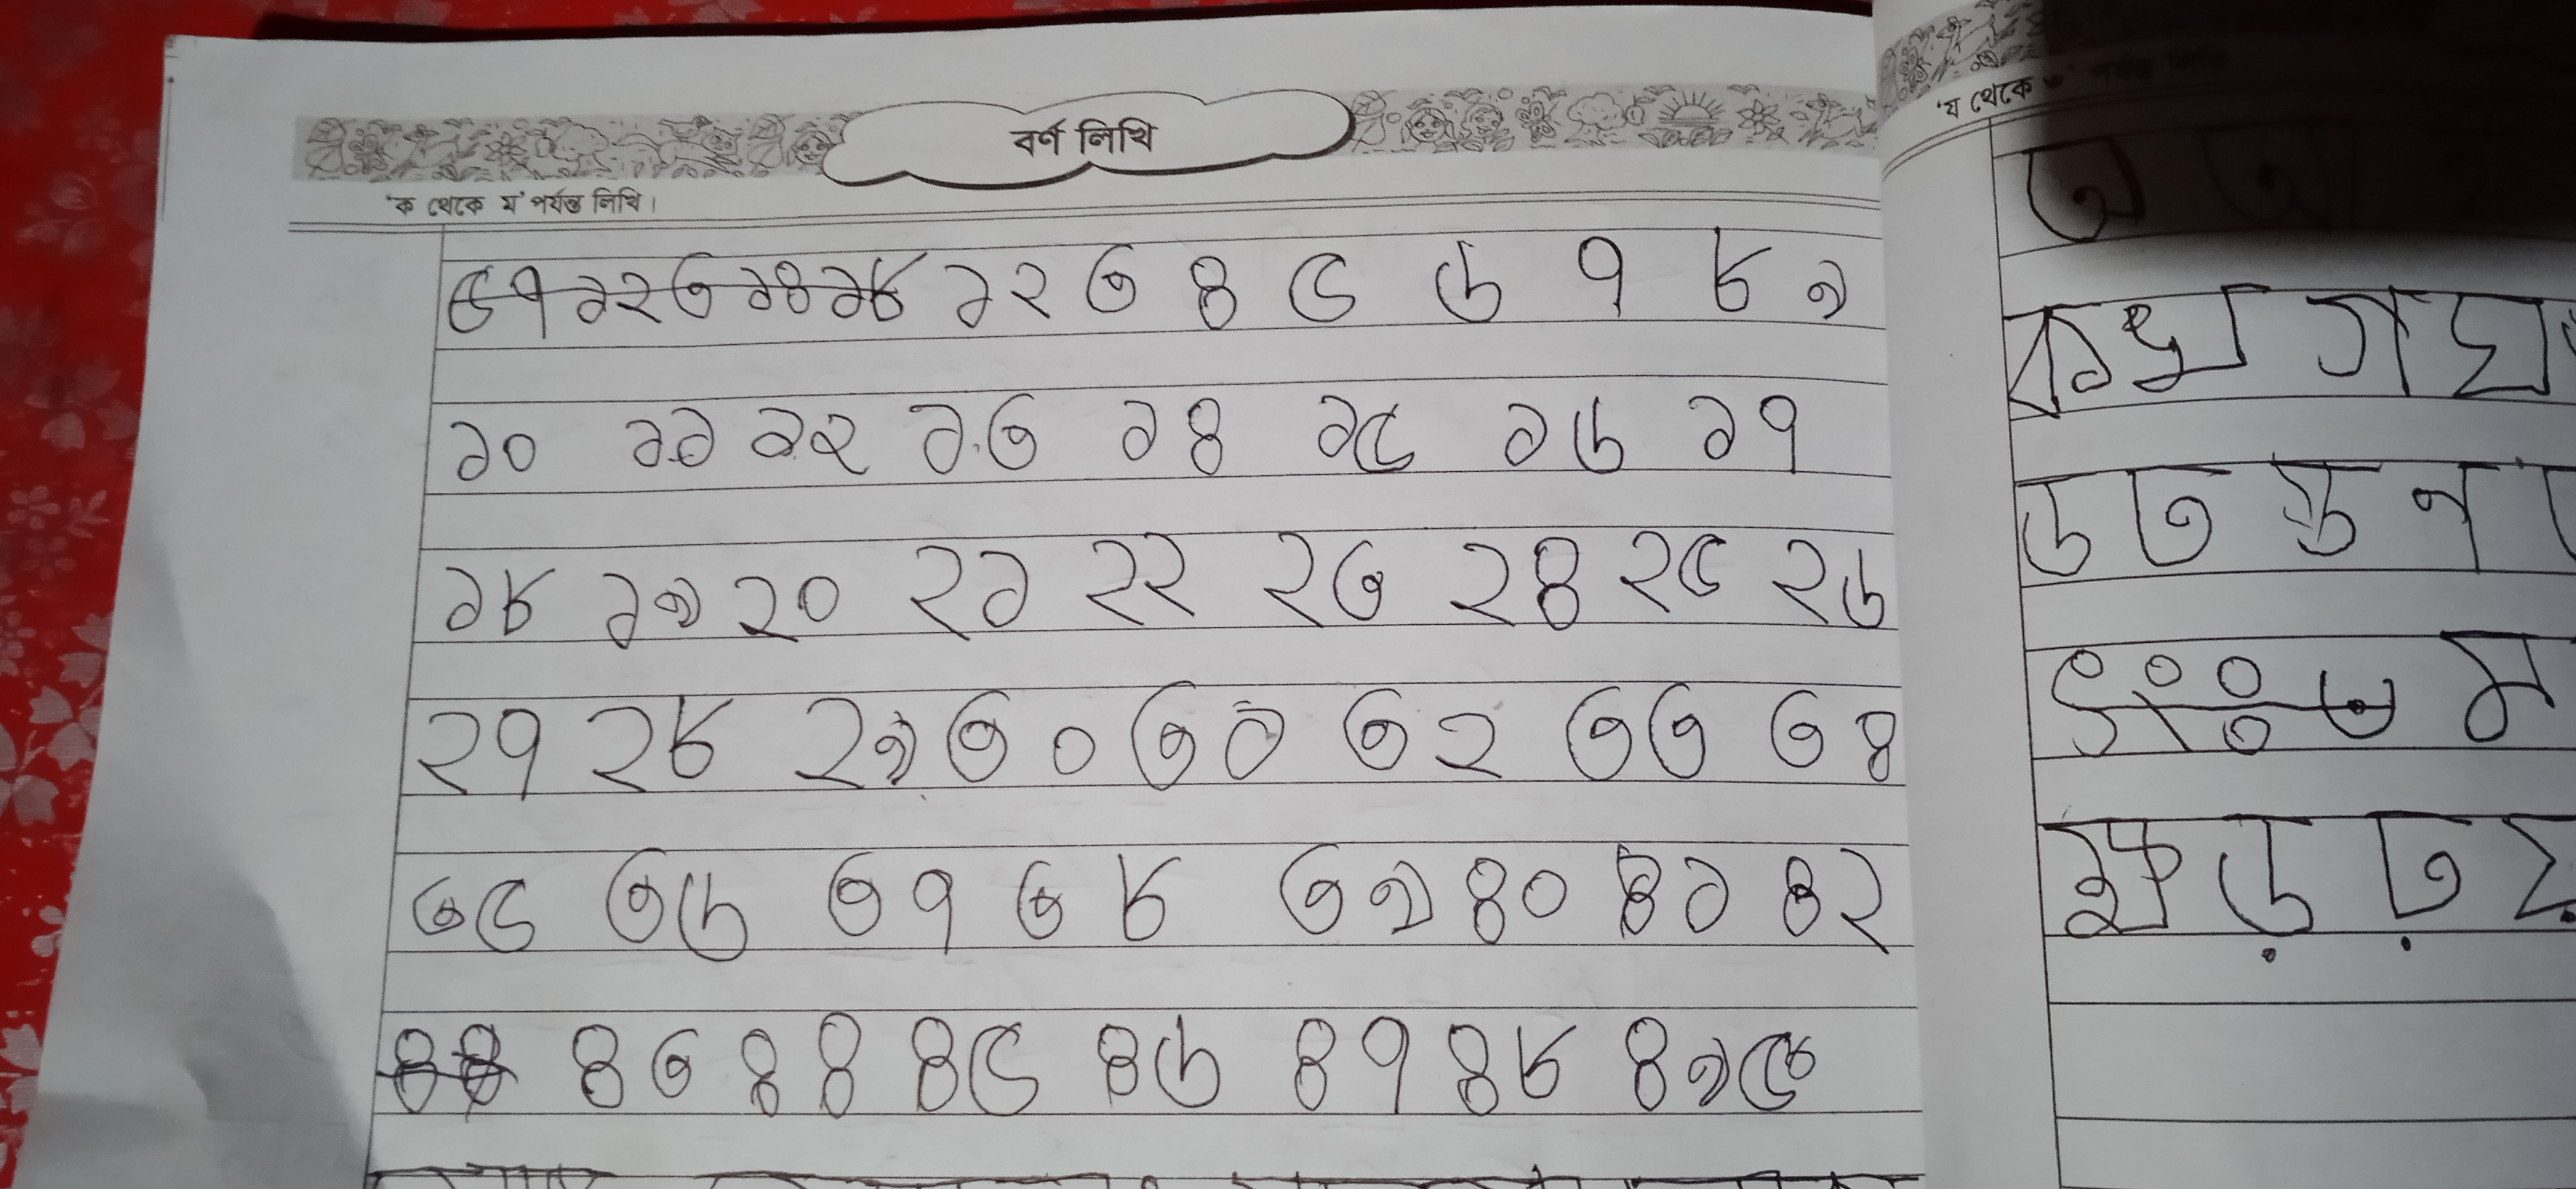 বর্ণ লিখি
'ক থেকে ম' পর্যন্ত লিখি।
১ ২ ৩ ৪ ৫ ৬ ৭ ৮ ৯
১০ ১১ ১২ ১৩ ১৪ ১৫ ১৬ ১৭
১৮ ১৯ ২০ ২১ ২২ ২৩ ২৪ ২৫ ২৬
২৭ ২৮ ২৯ ৩০ ৩১ ৩২ ৩৩ ৩৪
৩৫ ৩৬ ৩৭ ৩৮ ৩৯ ৪০ ৪১ ৪২
৪৩ ৪৪ ৪৫ ৪৬ ৪৭ ৪৮ ৪৯
'য থেকে ঁ' পর্যন্ত লিখি
অ আ
ক খ গ ঘ
ড ত ন
ৎ ং ঃ ঁ ম
ক্ষ ড় ঢ় য়